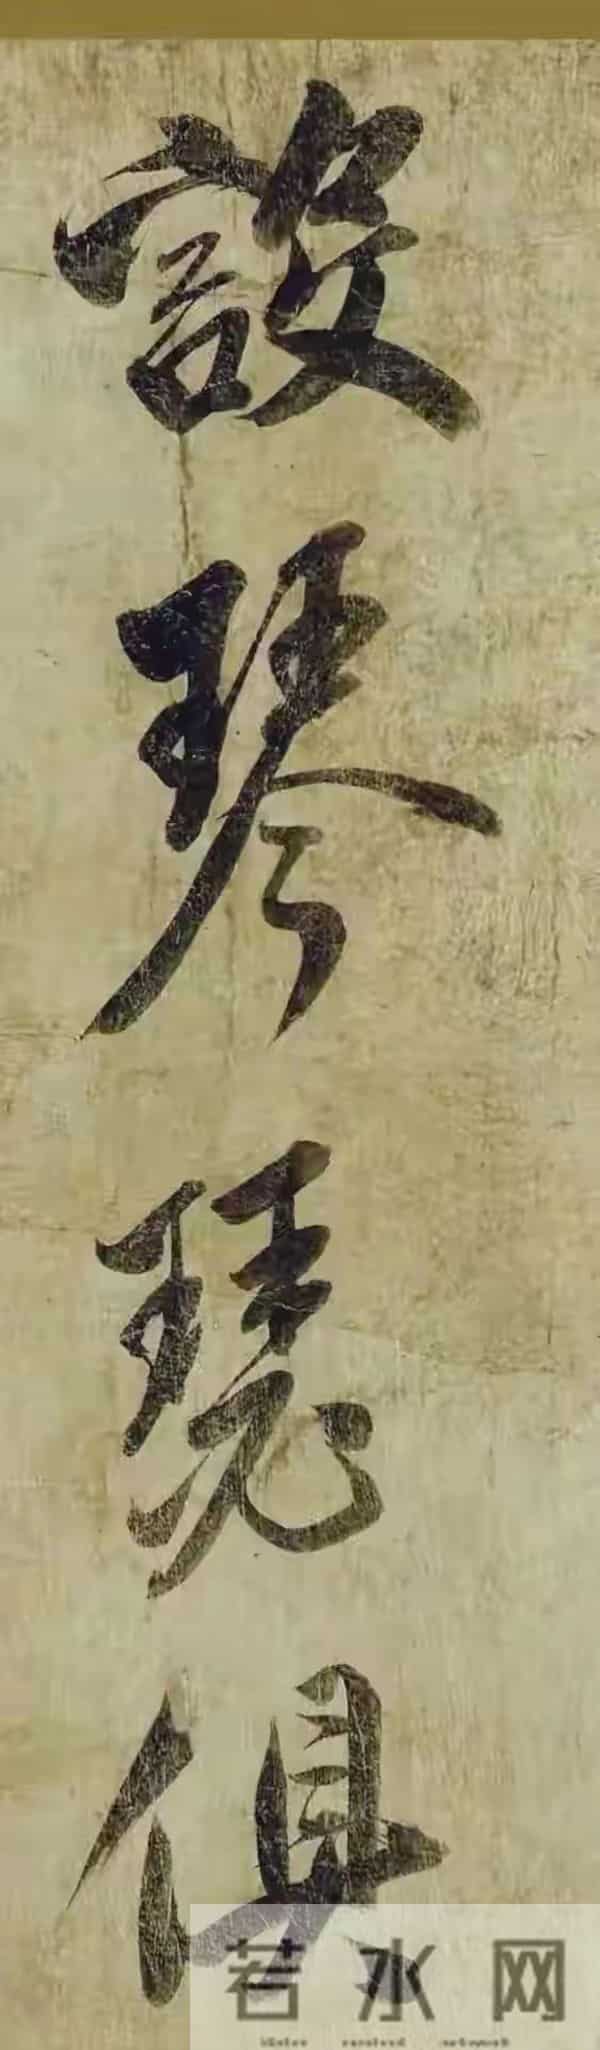 設琴瑟俱
若水网